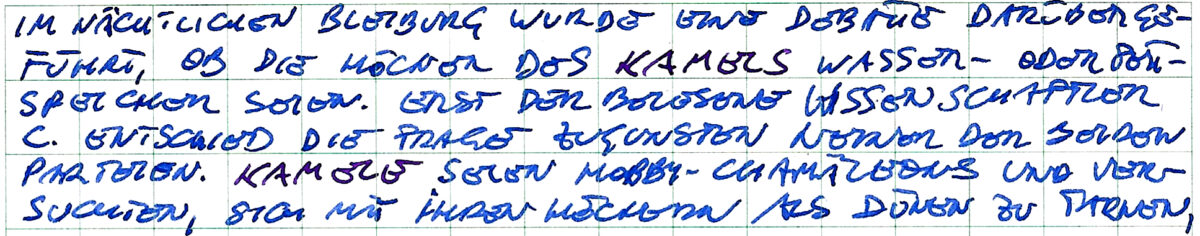 IM NÄCHTLICHEN BLEIBURG WURDE EINE DEBATTE DARÜBER GE-
FÜHRT, OB DIE HÖCKER DES KAMELS WASSER- ODER
SPEICHER SEIEN. ERST DER BELESENE WISSENSCHAFTLER
C. ENTSCHIED DIE FRAGE ZUGUNSTEN KEINER DER BEIDEN
PARTEIEN. KAMELE SEIEN HOBBY-CHAMÄLEONS UND VER-
SUCHTEN, SICH MIT IHREN HÖCKERN ALS DÜNEN ZU TARNEN,